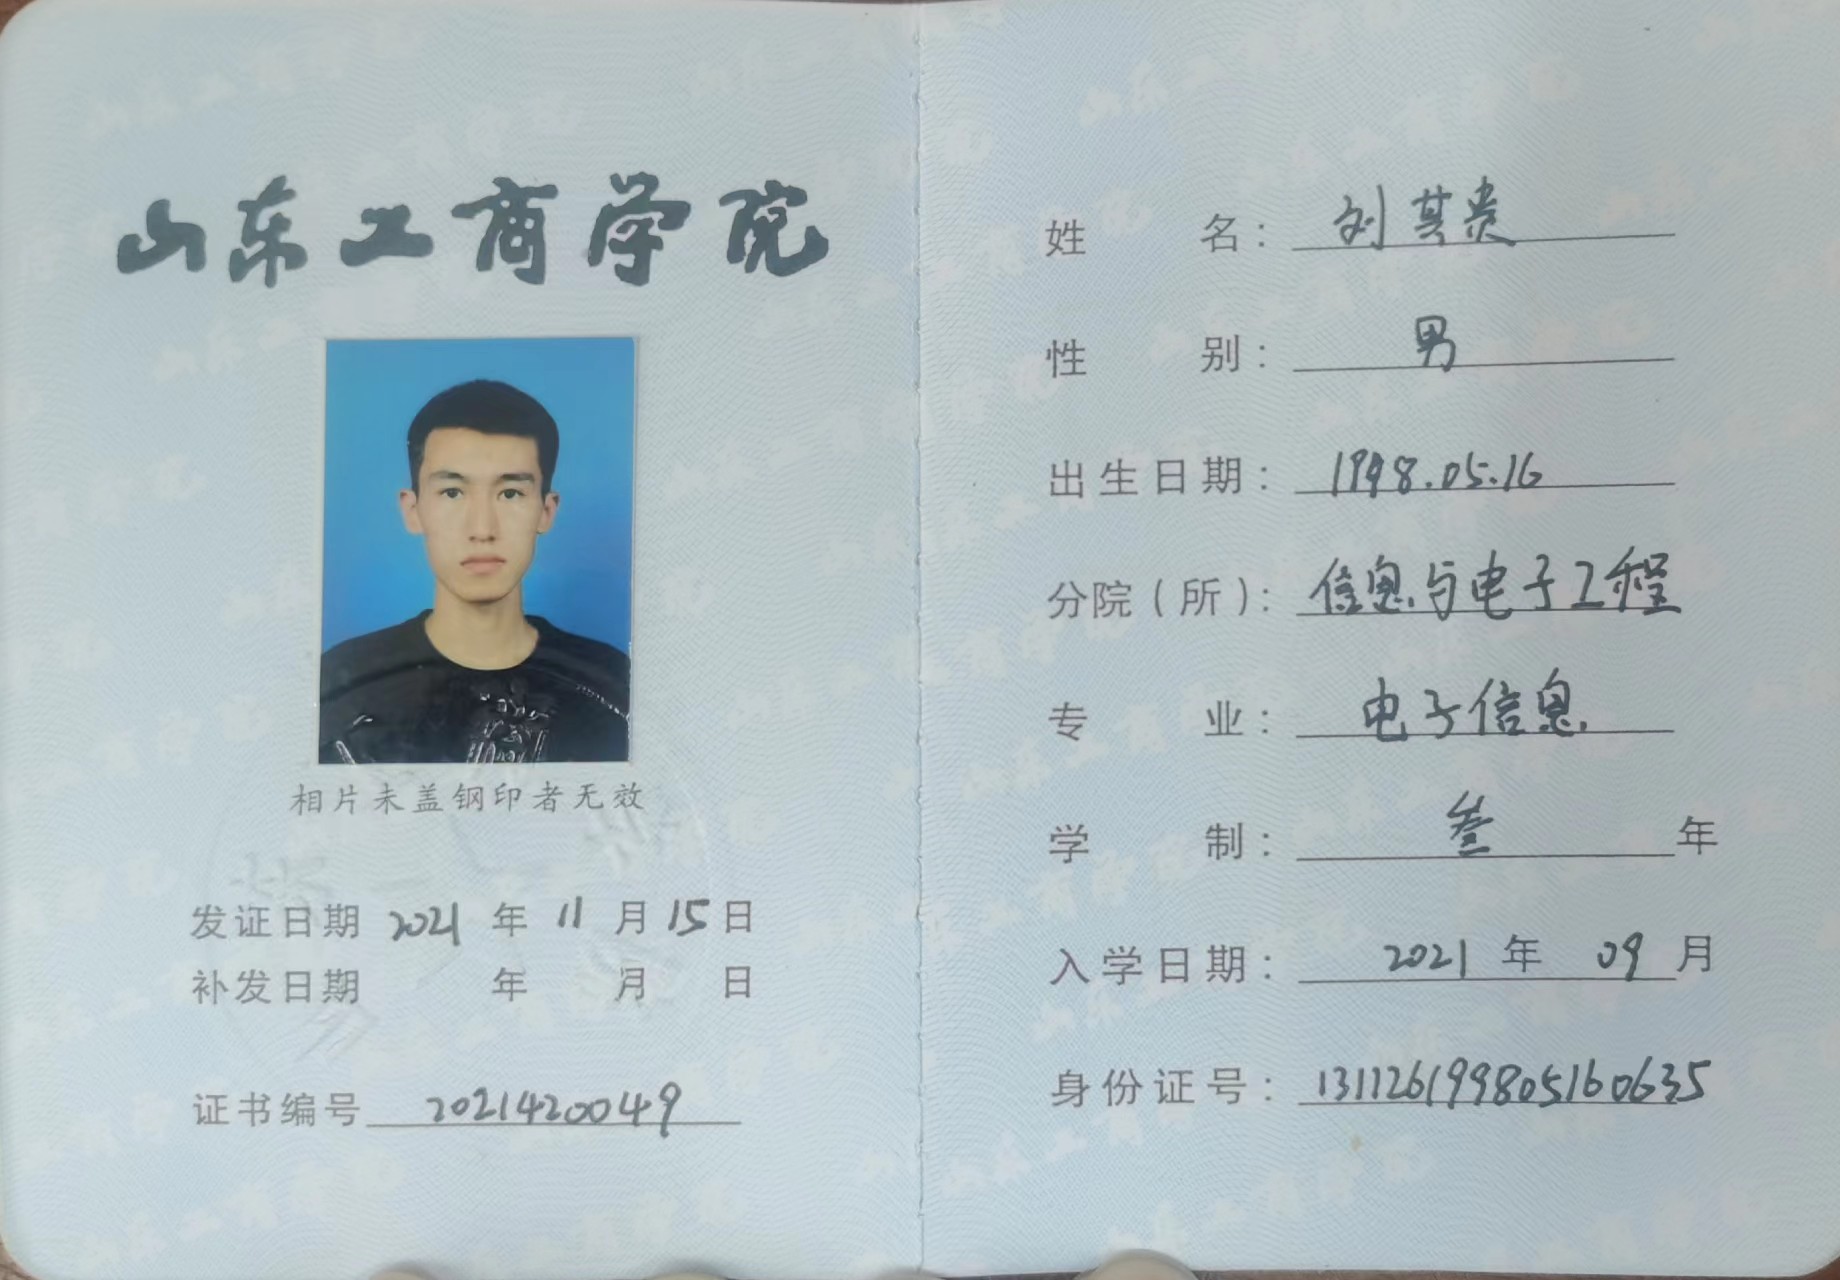 山东工商学院
相片未盖钢印者无效
发证日期 2021 年 11 月 15 日
补发日期 年 月 日
证书编号 2021420049
姓名: 刘其贵
性别: 男
出生日期: 1998.05.16
分院(所): 信息与电子工程
专业: 电子信息
学制: 叁 年
入学日期: 2021 年 09 月
身份证号: 131126199805160635